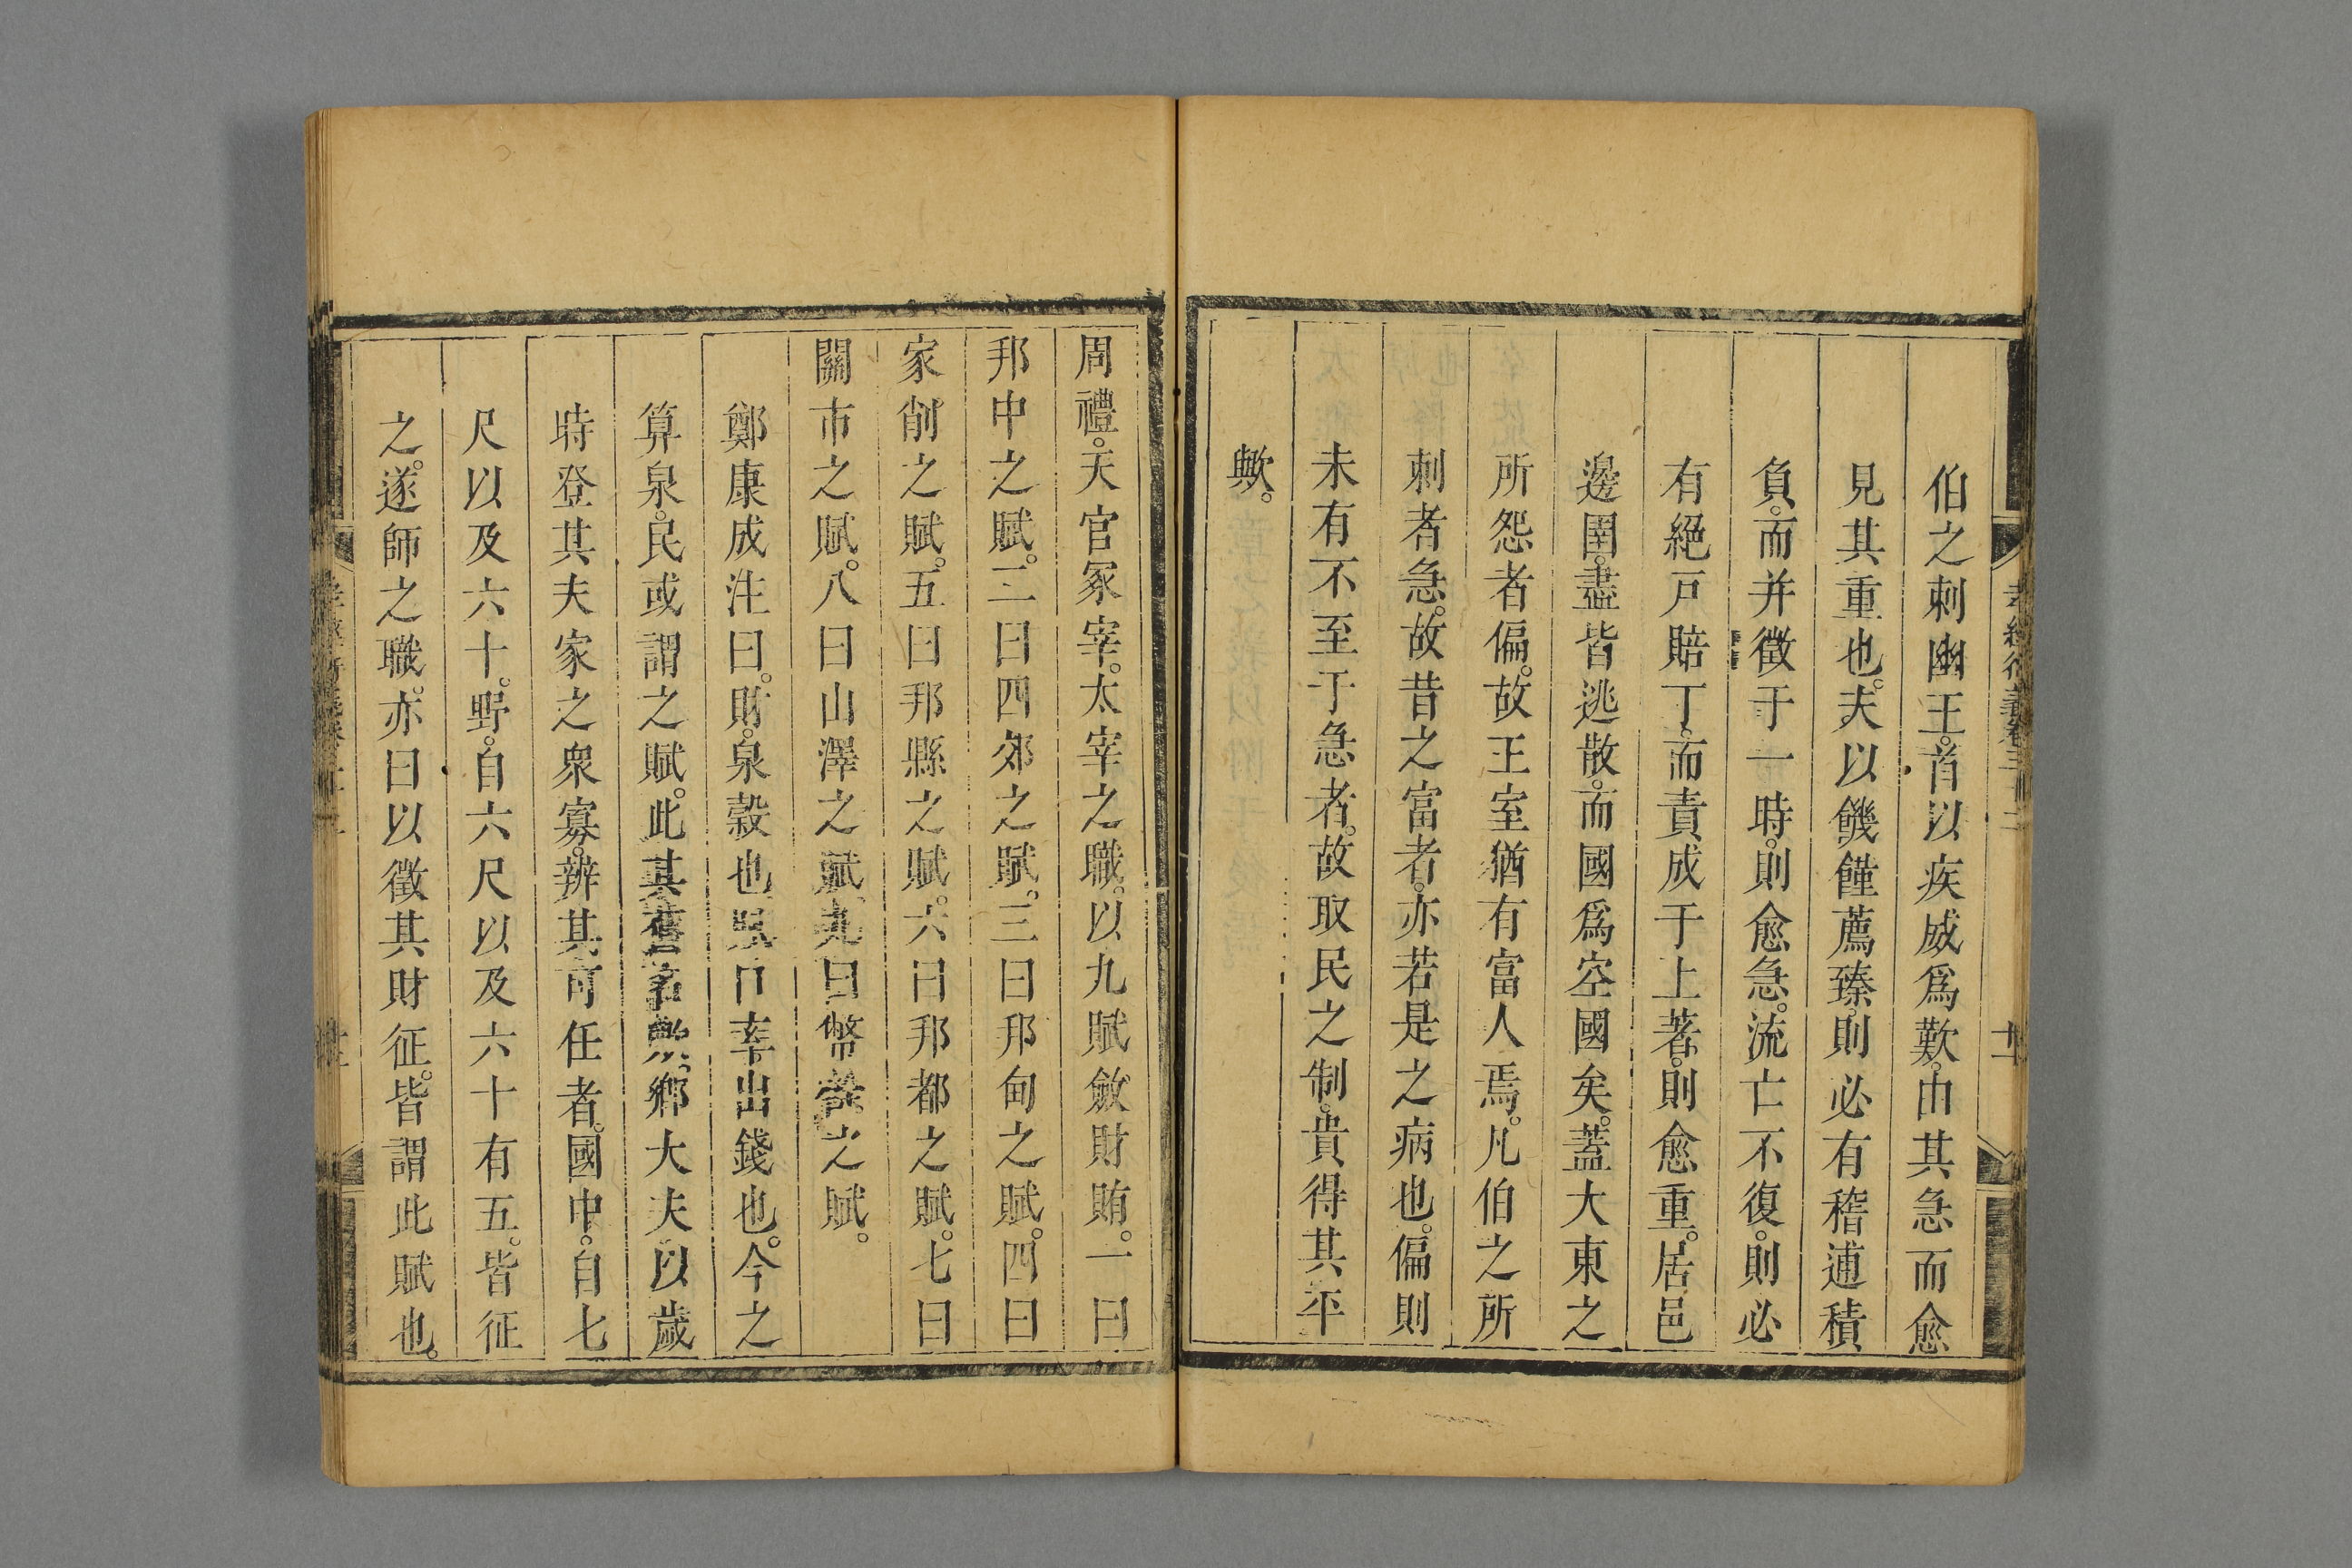 伯之刺幽王。首以疾威爲歎。由其急而愈
見其重也。夫以饑饉薦臻。則必有稽逋積
負。而并徵于一時。則愈急。流亡不復。則必
有絕戸賠丁。而責成于上著。則愈重。居邑
邊圉。盡皆逃散。而國爲空國矣。蓋大東之
所怨者偏。故王室猶有富人焉。凡伯之所
刺者急。故昔之富者。亦若是之病也。偏則
未有不至于急者。故取民之制。貴得其平
歟。
周禮。天官冢宰。太宰之職。以九賦斂財賄。一曰
邦中之賦。二曰四郊之賦。三曰邦甸之賦。四曰
家削之賦。五曰邦縣之賦。六曰邦都之賦。七曰
關市之賦。八曰山澤之賦。九曰幣餘之賦。
鄭康成注曰。財。泉穀也。賦口率出錢也。今之
算泉。民或謂之賦。此其舊名歟。鄉大夫以歲
時登其夫家之衆寡。辨其可任者。國中。自七
尺以及六十。野。自六尺以及六十有五。皆征
之。遂師之職。亦曰以徵其財征。皆謂此賦也。